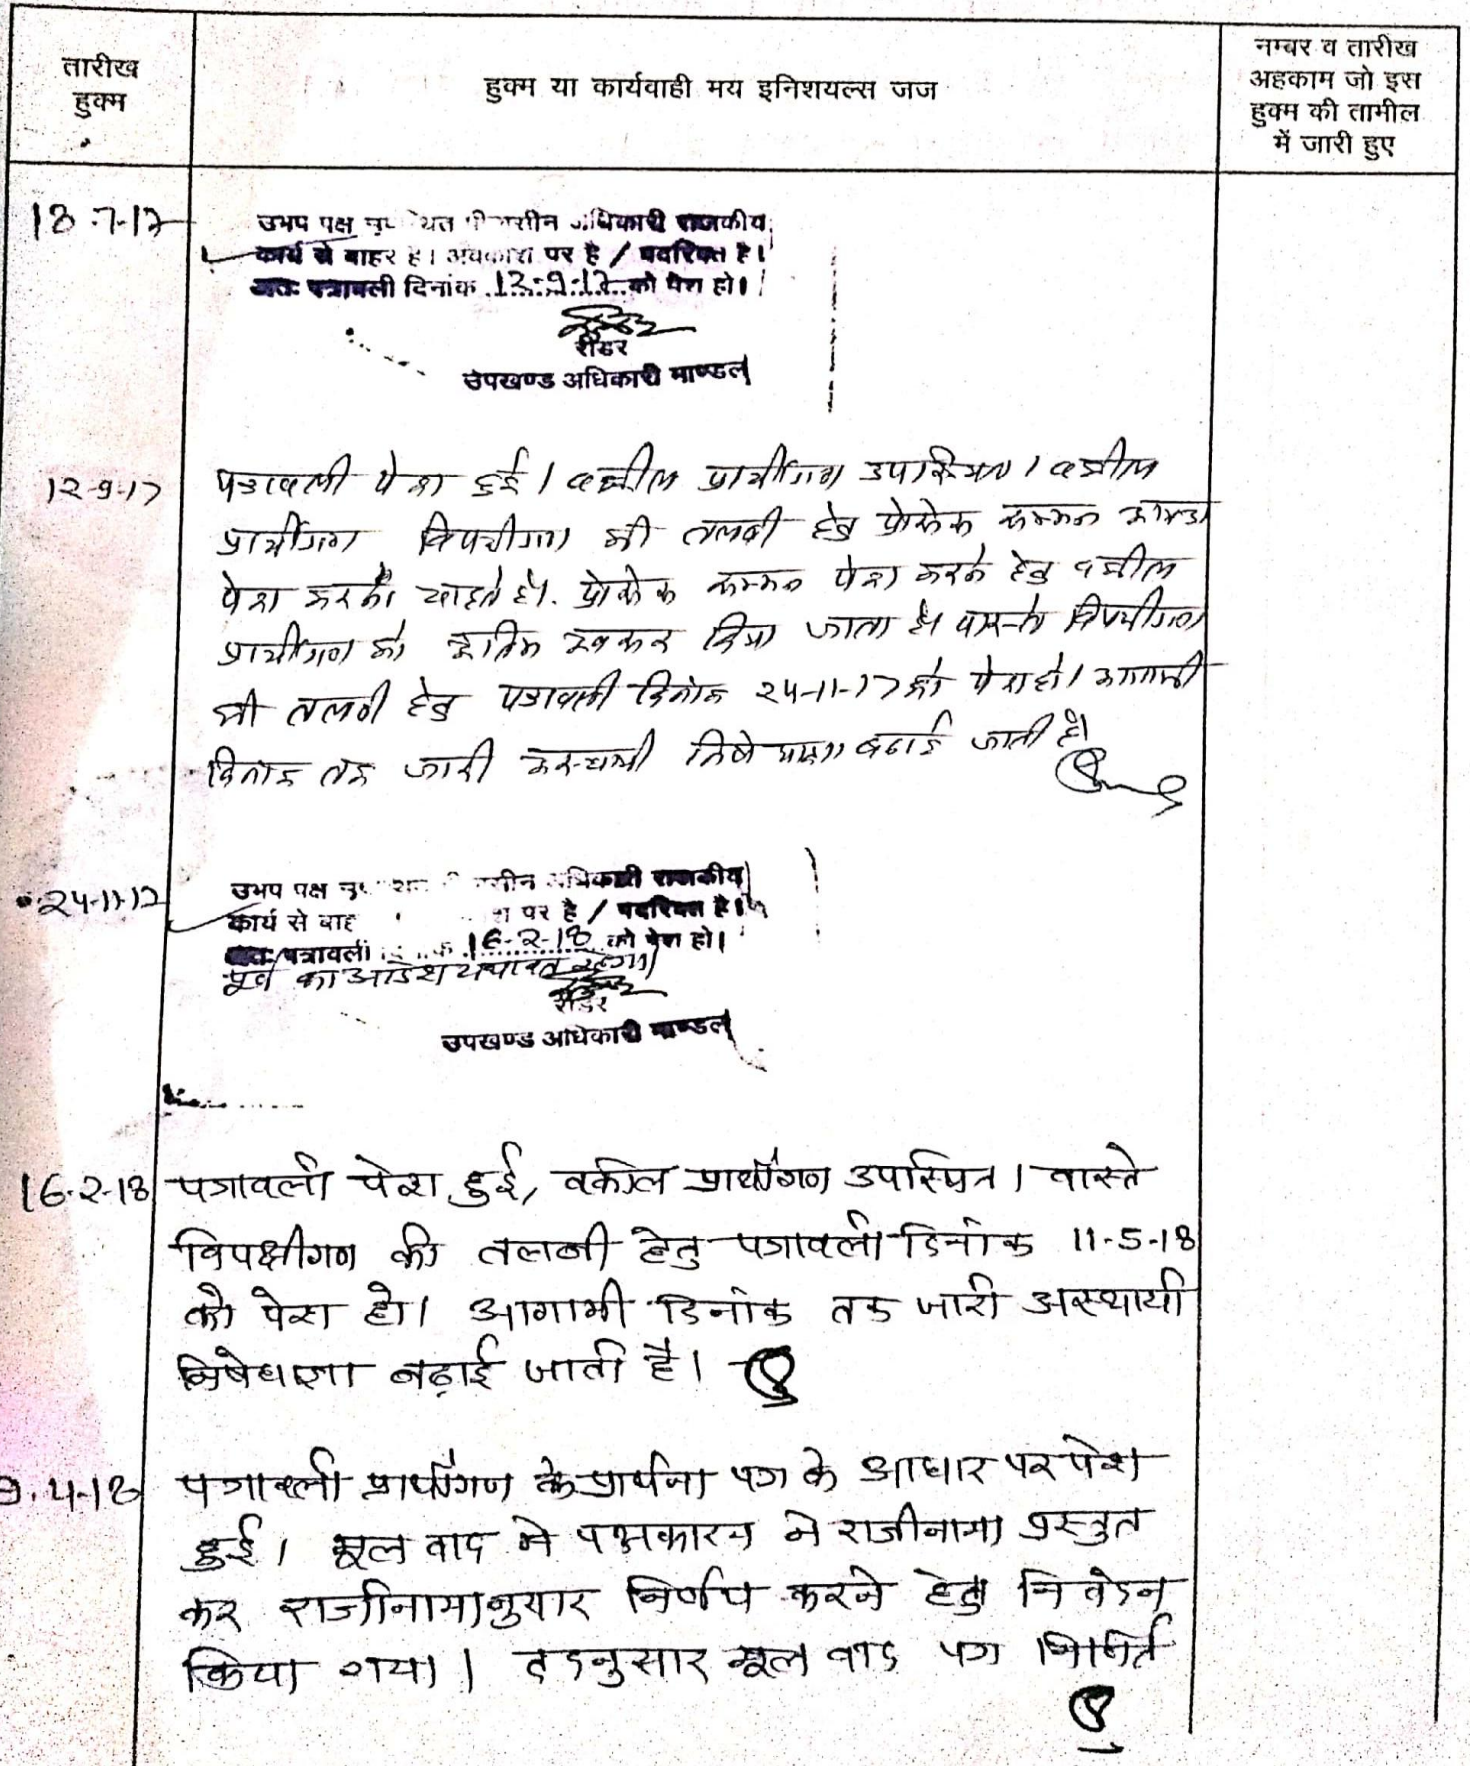 तारीख
हुक्म
हुक्म या कार्यवाही मय इनिशयल्स जज
नम्बर व तारीख
अहकाम जो इस
हुक्म की तामील
में जारी हुए
18-7-17
उभय पक्ष अधिकारी राजकीय
कार्य से बाहर है। अवकाश पर है / पदरिक्त है।
अतः पत्रावली दिनांक 12-9-17 को पेश हो।
रीडर
उपखण्ड अधिकारी माण्डल
12-9-17
पत्रावली पेश हुई। वकील प्रार्थीगण उपस्थित। वकील
प्रार्थीगण विपक्षीगण की तलबी हेतु प्रोसेस सम्मन
पेश करना चाहते है। प्रोसेस सम्मन पेश करने हेतु वकील
प्रार्थीगण को दिया जाता है। वास्ते विपक्षीगण
की तलबी हेतु पत्रावली दिनांक 24-11-17 को पेश हो। आगामी
दिनांक तक जारी अस्थायी निषेधाज्ञा बढाई जाती है।
24-11-17
उभय पक्ष अधिकारी राजकीय
कार्य से पर है / पदरिक्त है।
अतः पत्रावली 16-2-18 को पेश हो।
पूर्व का आदेश यथावत रहेगा।
रीडर
उपखण्ड अधिकारी माण्डल
16-2-18
पत्रावली पेश हुई, वकील प्रार्थीगण उपस्थित। वास्ते
विपक्षीगण की तलबी हेतु पत्रावली दिनांक 11-5-18
को पेश हो। आगामी दिनांक तक जारी अस्थायी
निषेधाज्ञा बढ़ाई जाती है।
4-18
पत्रावली प्रार्थीगण के प्रार्थना पत्र के आधार पर पेश
हुई। मूल वाद मे पक्षकारन ने राजीनामा प्रस्तुत
कर राजीनामानुसार निर्णय करने हेतु निवेदन
किया गया। तदनुसार मूल वाद पत्र निर्णित